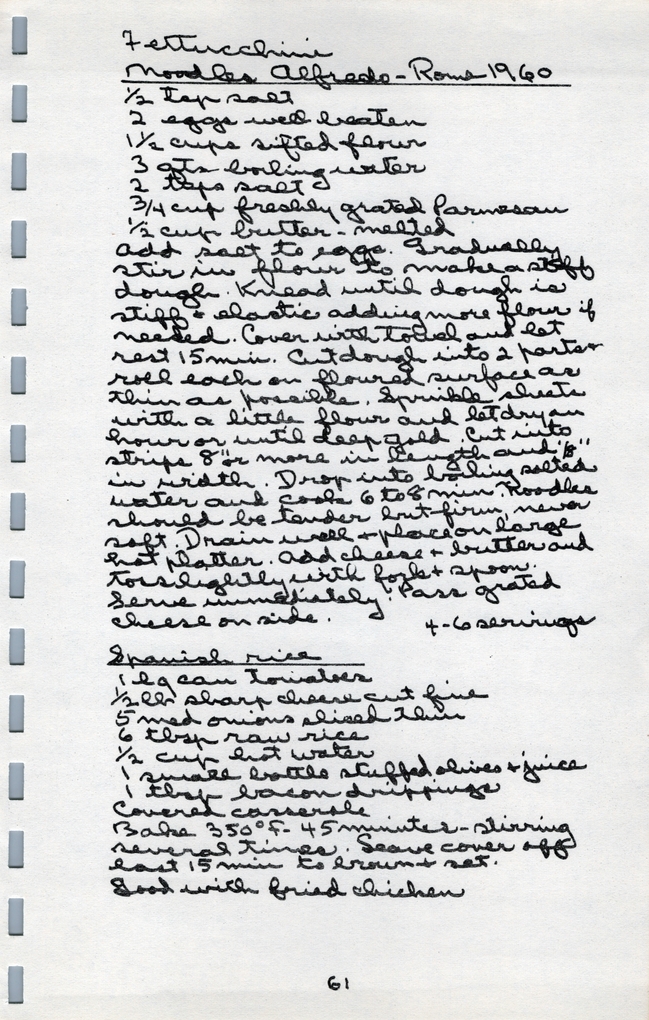 Fettucchini
Noodles Alfredo - Rome 1960
1/2 tsp salt
2 eggs well beaten
1 1/2 cups sifted flour
3 qts boiling water
2 tbsps salt
3/4 cup freshly grated Parmesan
1/2 cup butter - melted
Add salt to eggs. Gradually
stir in flour to make a stiff
dough. Knead until dough is
stiff + elastic adding more flour if
needed. Cover with towel and let
rest 15 min. Cut dough into 2 parts +
roll each on floured surface as
thin as possible. Sprinkle sheets
with a little flour and let dry an
hour or until deep gold. Cut into
strips 8" or more in length and 1/8"
in width. Drop into boiling salted
water and cook 6 to 8 min. Noodles
should be tender but firm, never
soft. Drain well + place on large
hot platter. Add cheese + butter and
toss lightly with fork + spoon.
Serve immediately! Pass grated
cheese on side. 4-6 servings
Spanish rice
1 lg can tomatoes
1/2 lb sharp cheese cut fine
5 med onions sliced thin
6 tbsp raw rice
1/2 cup hot water
1 small bottle stuffed olives + juice
1 tbsp bacon drippings
Covered casserole
Bake 350°F - 45 minutes - stirring
several times. Leave cover off
last 15 min to brown + set.
Good with fried chicken
61